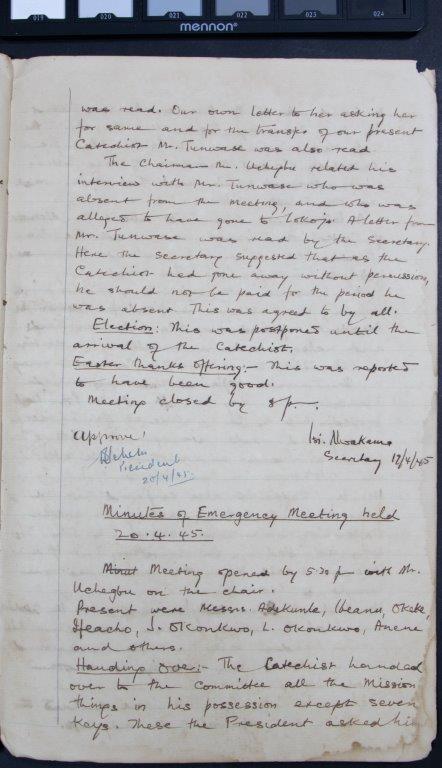 019 020 021 022 023 024
mennon®
was read. Our own letter to her asking her
for same and for the transfer of our present
Catechist Mr. Tunwase was also read
The Chairman Mr. Uchegbu related his
interview with Mr. Tunwase who was
absent from the meeting, and who was
alleged to have gone to Lokoja. A letter from
Mr. Tunwase was read by the Secretary.
Here the secretary suggested that as the
Catechist had gone away without permission,
he should not be paid for the period he
was absent This was agreed to by all.
Election: This was postponed until the
arrival of the Catechist.
Easter Thanks offering:- This was reported
to have been good.
Meeting closed by 8 p.
Approve!
President
20/4/45.
Nwakama
Secretary 17/4/45
Minutes of Emergency Meeting held
20.4.45.
Meeting opened by 5.30 p with Mr.
Uchegbu on the chair.
Present were Messrs. Adekunle, Okeke,
J. Okonkwo, L. Okonkwo, Anene
and others.
Handing Over:- The Catechist handed
over to the Committee all the Mission
things in his possession except seven
Keys. These the President asked him